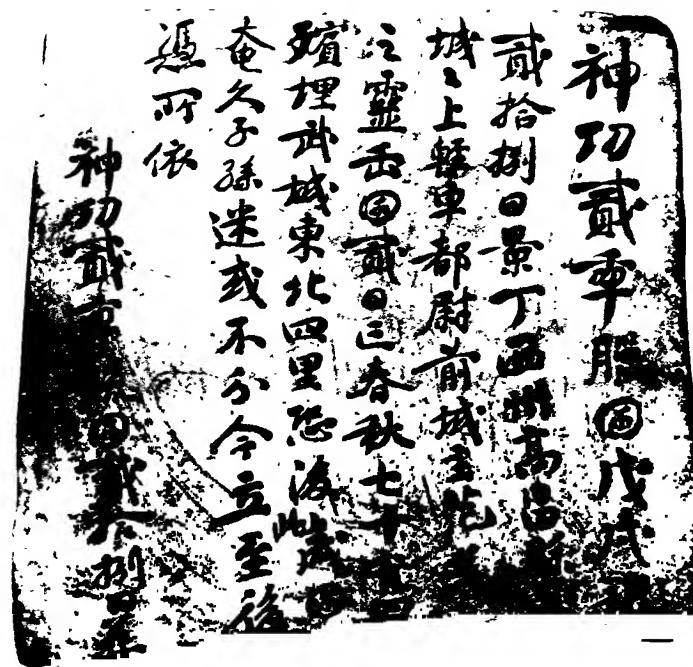 神功貳年臈囝戊戌朔
貳拾捌日景丁西州高昌縣
城〻上輕車都尉前城主范
之靈正囝貳日亡春秋七十有四
殯埋武城東北四里恐後歲囝
奄久子孫迷或不分今立至後
憑所依
神功貳年臈囝貳拾捌日葬